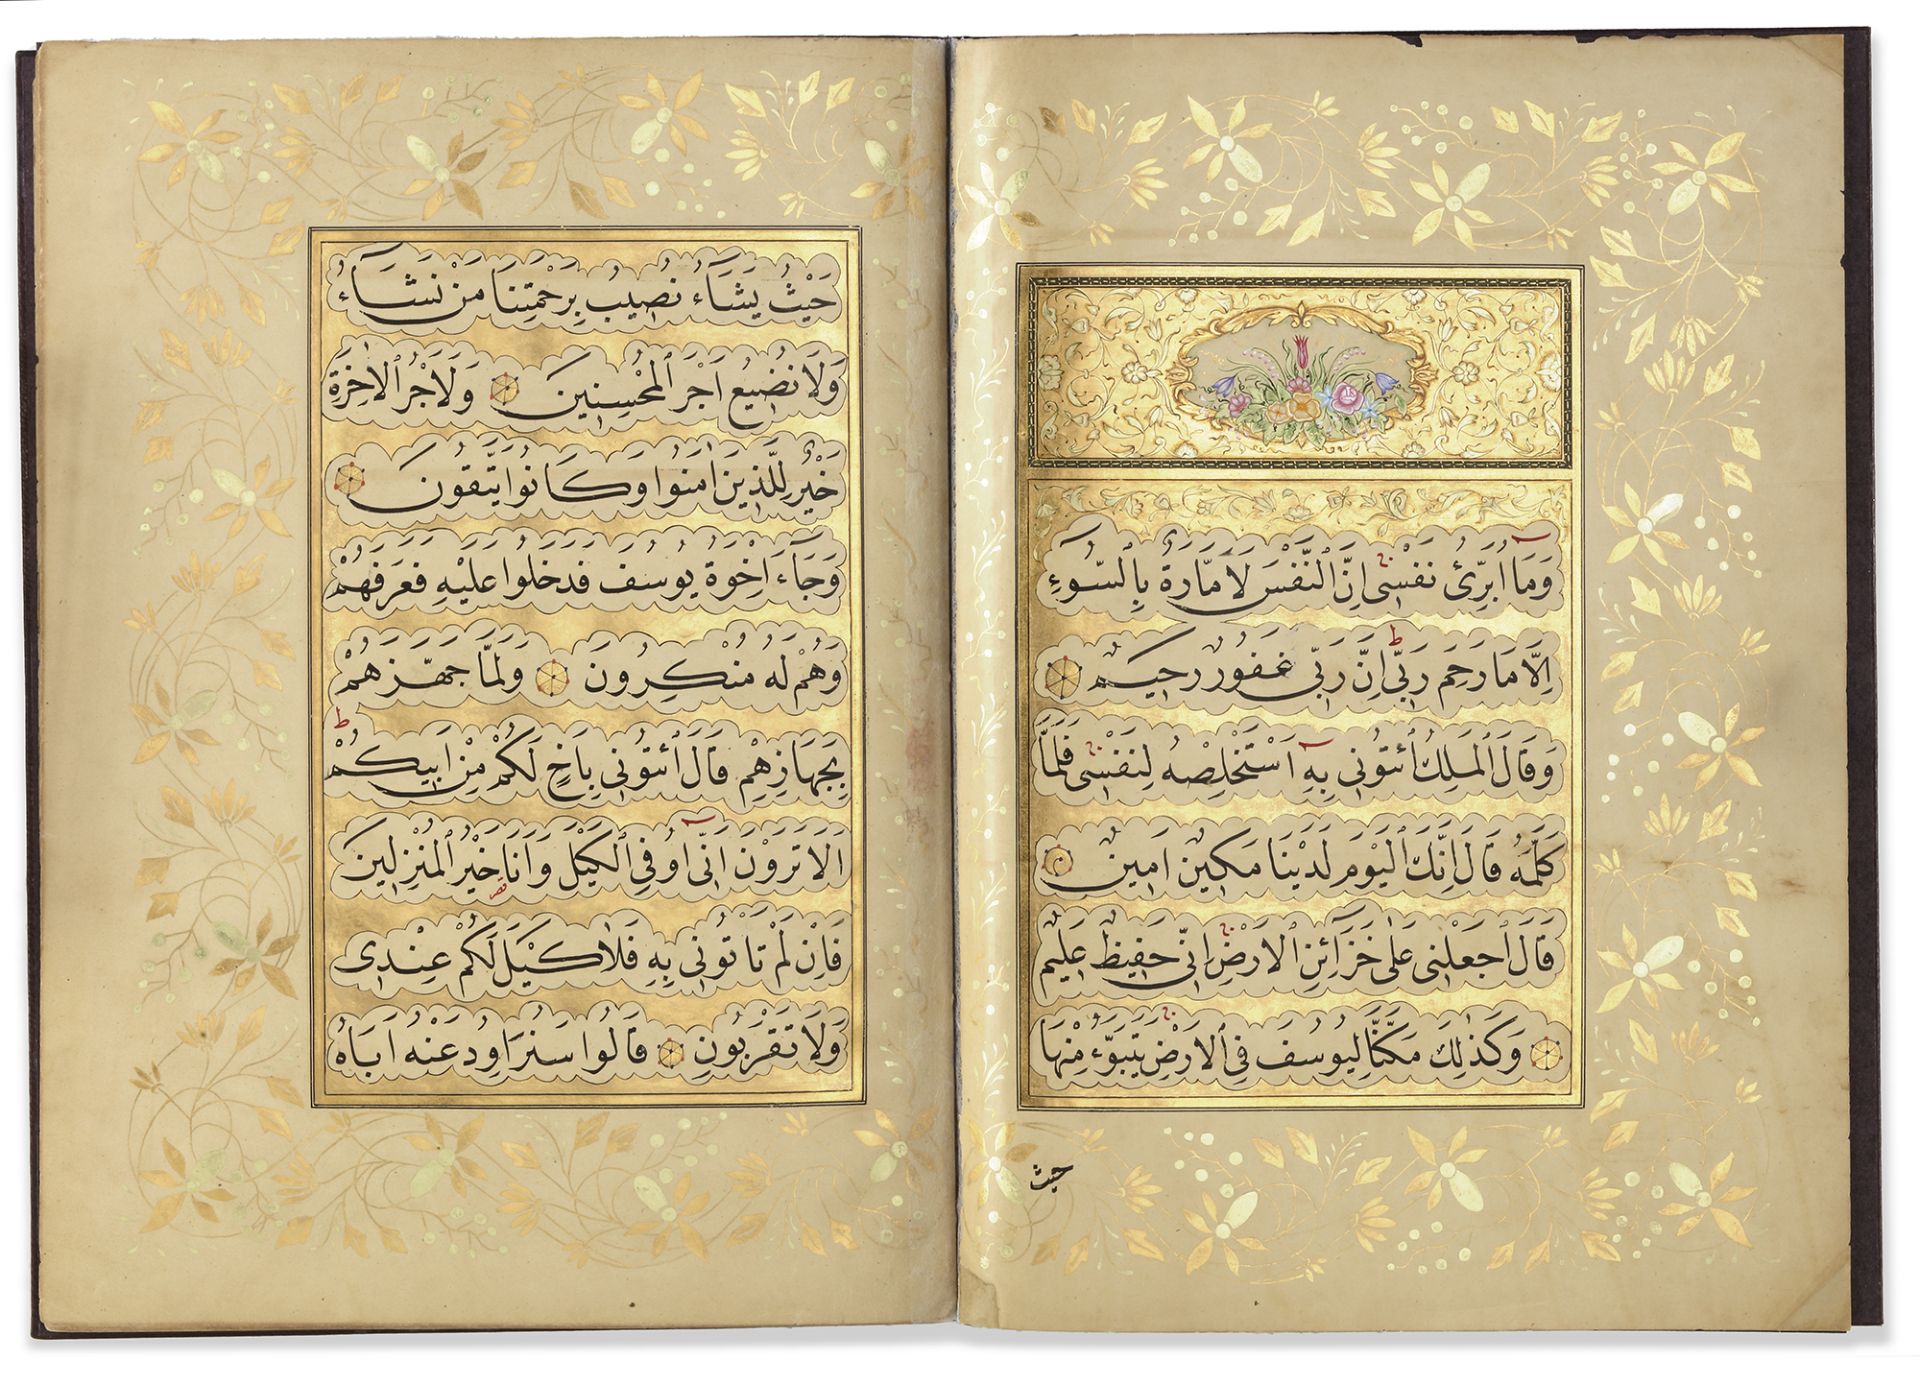 وَمَا اُبَرِّئُ نَفْسٖى اِنَّ النَّفْسَ لَاَمَّارَةٌ بِالسُّٓوءِ
اِلَّا مَا رَحِمَ رَبّٖى اِنَّ رَبّٖى غَفُورٌ رَحٖيمٌ
وَقَالَ الْمَلِكُ ائْتُونٖى بِهٖ اَسْتَخْلِصْهُ لِنَفْسٖى فَلَمَّا
كَلَّمَهُ قَالَ اِنَّكَ الْيَوْمَ لَدَيْنَا مَكٖينٌ اَمٖينٌ
قَالَ اجْعَلْنٖى عَلٰى خَزَٓائِنِ الْاَرْضِ اِنّٖى حَفٖيظٌ عَلٖيمٌ
وَكَذٰلِكَ مَكَّنَّا لِيُوسُفَ فِى الْاَرْضِ يَتَبَوَّءُ مِنْهَا
حيث
حَيْثُ يَشَٓاءُ نُصٖيبُ بِرَحْمَتِنَا مَنْ نَشَٓاءُ
وَلَا نُضٖيعُ اَجْرَ الْمُحْسِنٖينَ وَلَاَجْرُ الْاٰخِرَةِ
خَيْرٌ لِلَّذٖينَ اٰمَنُوا وَكَانُوا يَتَّقُونَ
وَجَٓاءَ اِخْوَةُ يُوسُفَ فَدَخَلُوا عَلَيْهِ فَعَرَفَهُمْ
وَهُمْ لَهُ مُنْكِرُونَ وَلَمَّا جَهَّزَهُمْ
بِجَهَازِهِمْ قَالَ ائْتُونٖى بِاَخٍ لَكُمْ مِنْ اَبٖيكُمْ
اَلَا تَرَوْنَ اَنّٖى اُوفِى الْكَيْلَ وَاَنَا خَيْرُ الْمُنْزِلٖينَ
فَاِنْ لَمْ تَاْتُونٖى بِهٖ فَلَا كَيْلَ لَكُمْ عِنْدٖى
وَلَا تَقْرَبُونِ قَالُوا سَنُرَاوِدُ عَنْهُ اَبَاهُ